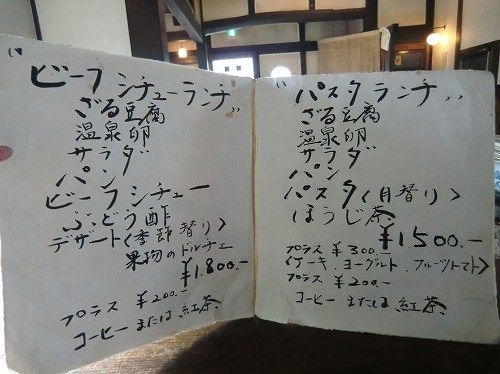 "ビーフシチューランチ"
ざる豆腐
温泉卵
サラダ
パン
ビーフシチュー
ぶどう酢
デザート(季節替り)
果物のドルチェ
¥1,800.-
プラス ¥200.-
コーヒーまたは紅茶
"パスタランチ"
ざる豆腐
温泉卵
サラダ
パン
パスタ(月替り)
ほうじ茶
¥1,500.-
プラス ¥300.-
(ケーキ、ヨーグルト、フルーツトマト)
プラス ¥200.-
コーヒー または 紅茶